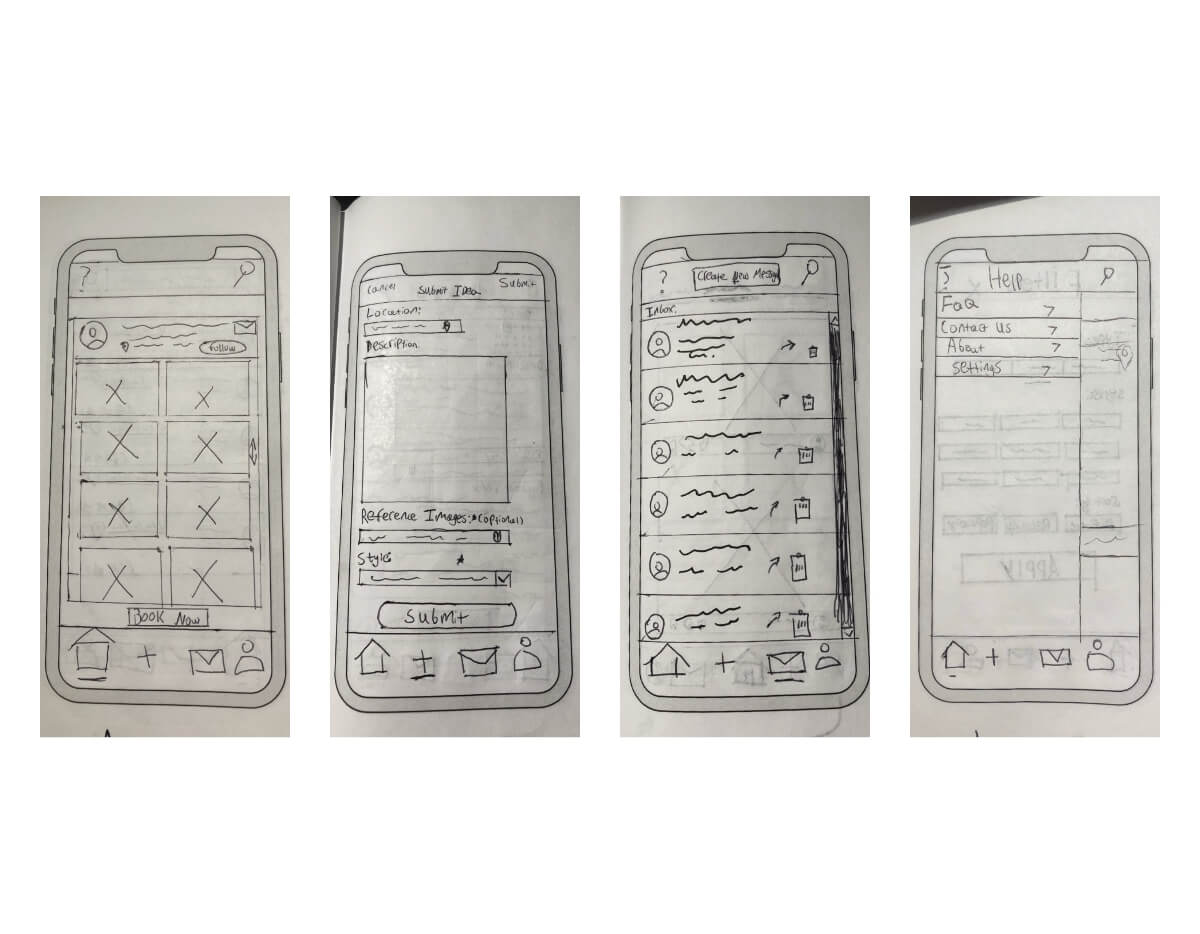 ?
Follow
Book Now
Cancel
Submit Idea
Submit
Location:
Description
Reference Images:*(optional)
Styles *
Submit
?
Create New Message
Inbox:
?
Help
FaQ
Contact Us
About
Settings
APPLY